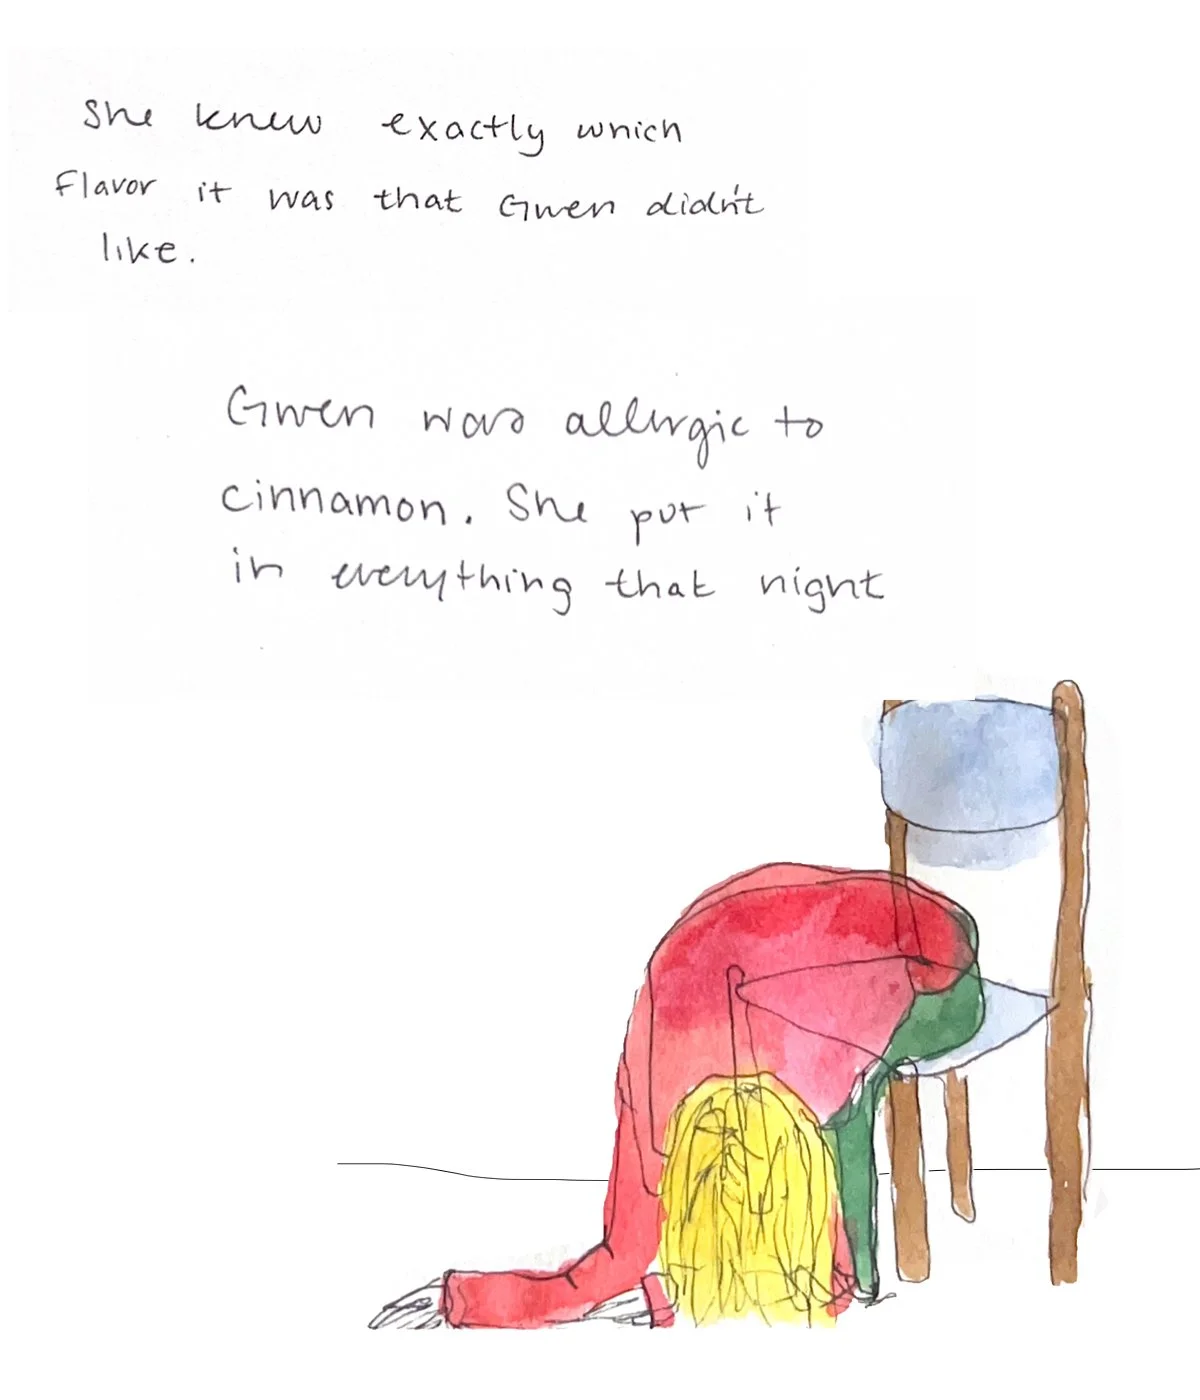 She knew exactly which
Flavor it was that Gwen didn't
like.
Gwen was allergic to
cinnamon. She put it
in everything that night